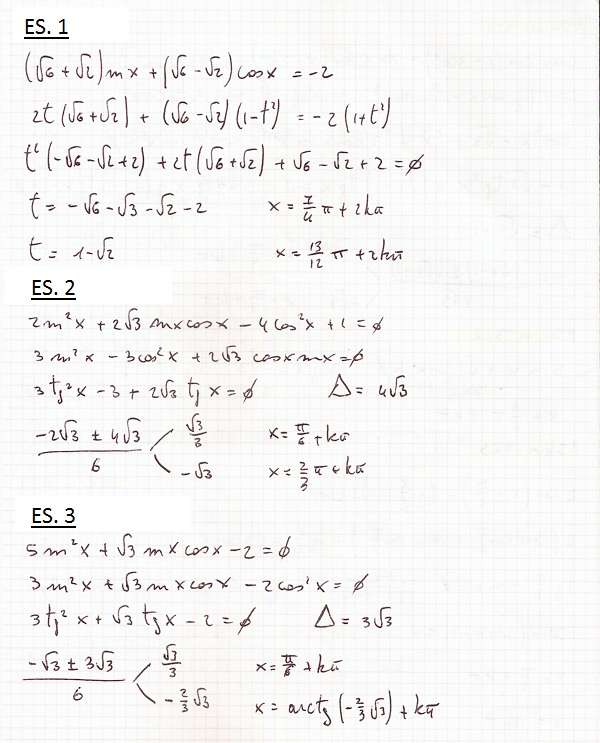 ES. 1
(√6 + √2) sin x + (√6 - √2) cos x = -2
2t (√6 + √2) + (√6 - √2) (1 - t²) = -2 (1 + t²)
t² (-√6 - √2 + 2) + 2t (√6 + √2) + √6 - √2 + 2 = ∅
t = -√6 - √3 - √2 - 2 x = 7/4 π + 2kπ
t = 1 - √2 x = 13/12 π + 2kπ
ES. 2
2 sin²x + 2√3 sin x cos x - 4 cos²x + 1 = ∅
3 sin²x - 3 cos²x + 2√3 cos x sin x = ∅
3 tg²x - 3 + 2√3 tg x = ∅ Δ = 4√3
(-2√3 ± 4√3)/6 √3/3 x = π/6 + kπ
-√3 x = 2/3 π + kπ
ES. 3
5 sin²x + √3 sin x cos x - 2 = ∅
3 sin²x + √3 sin x cos x - 2 cos²x = ∅
3 tg²x + √3 tg x - 2 = ∅ Δ = 3√3
(-√3 ± 3√3)/6 √3/3 x = π/6 + kπ
-2/3 √3 x = arctg (-2/3 √3) + kπ